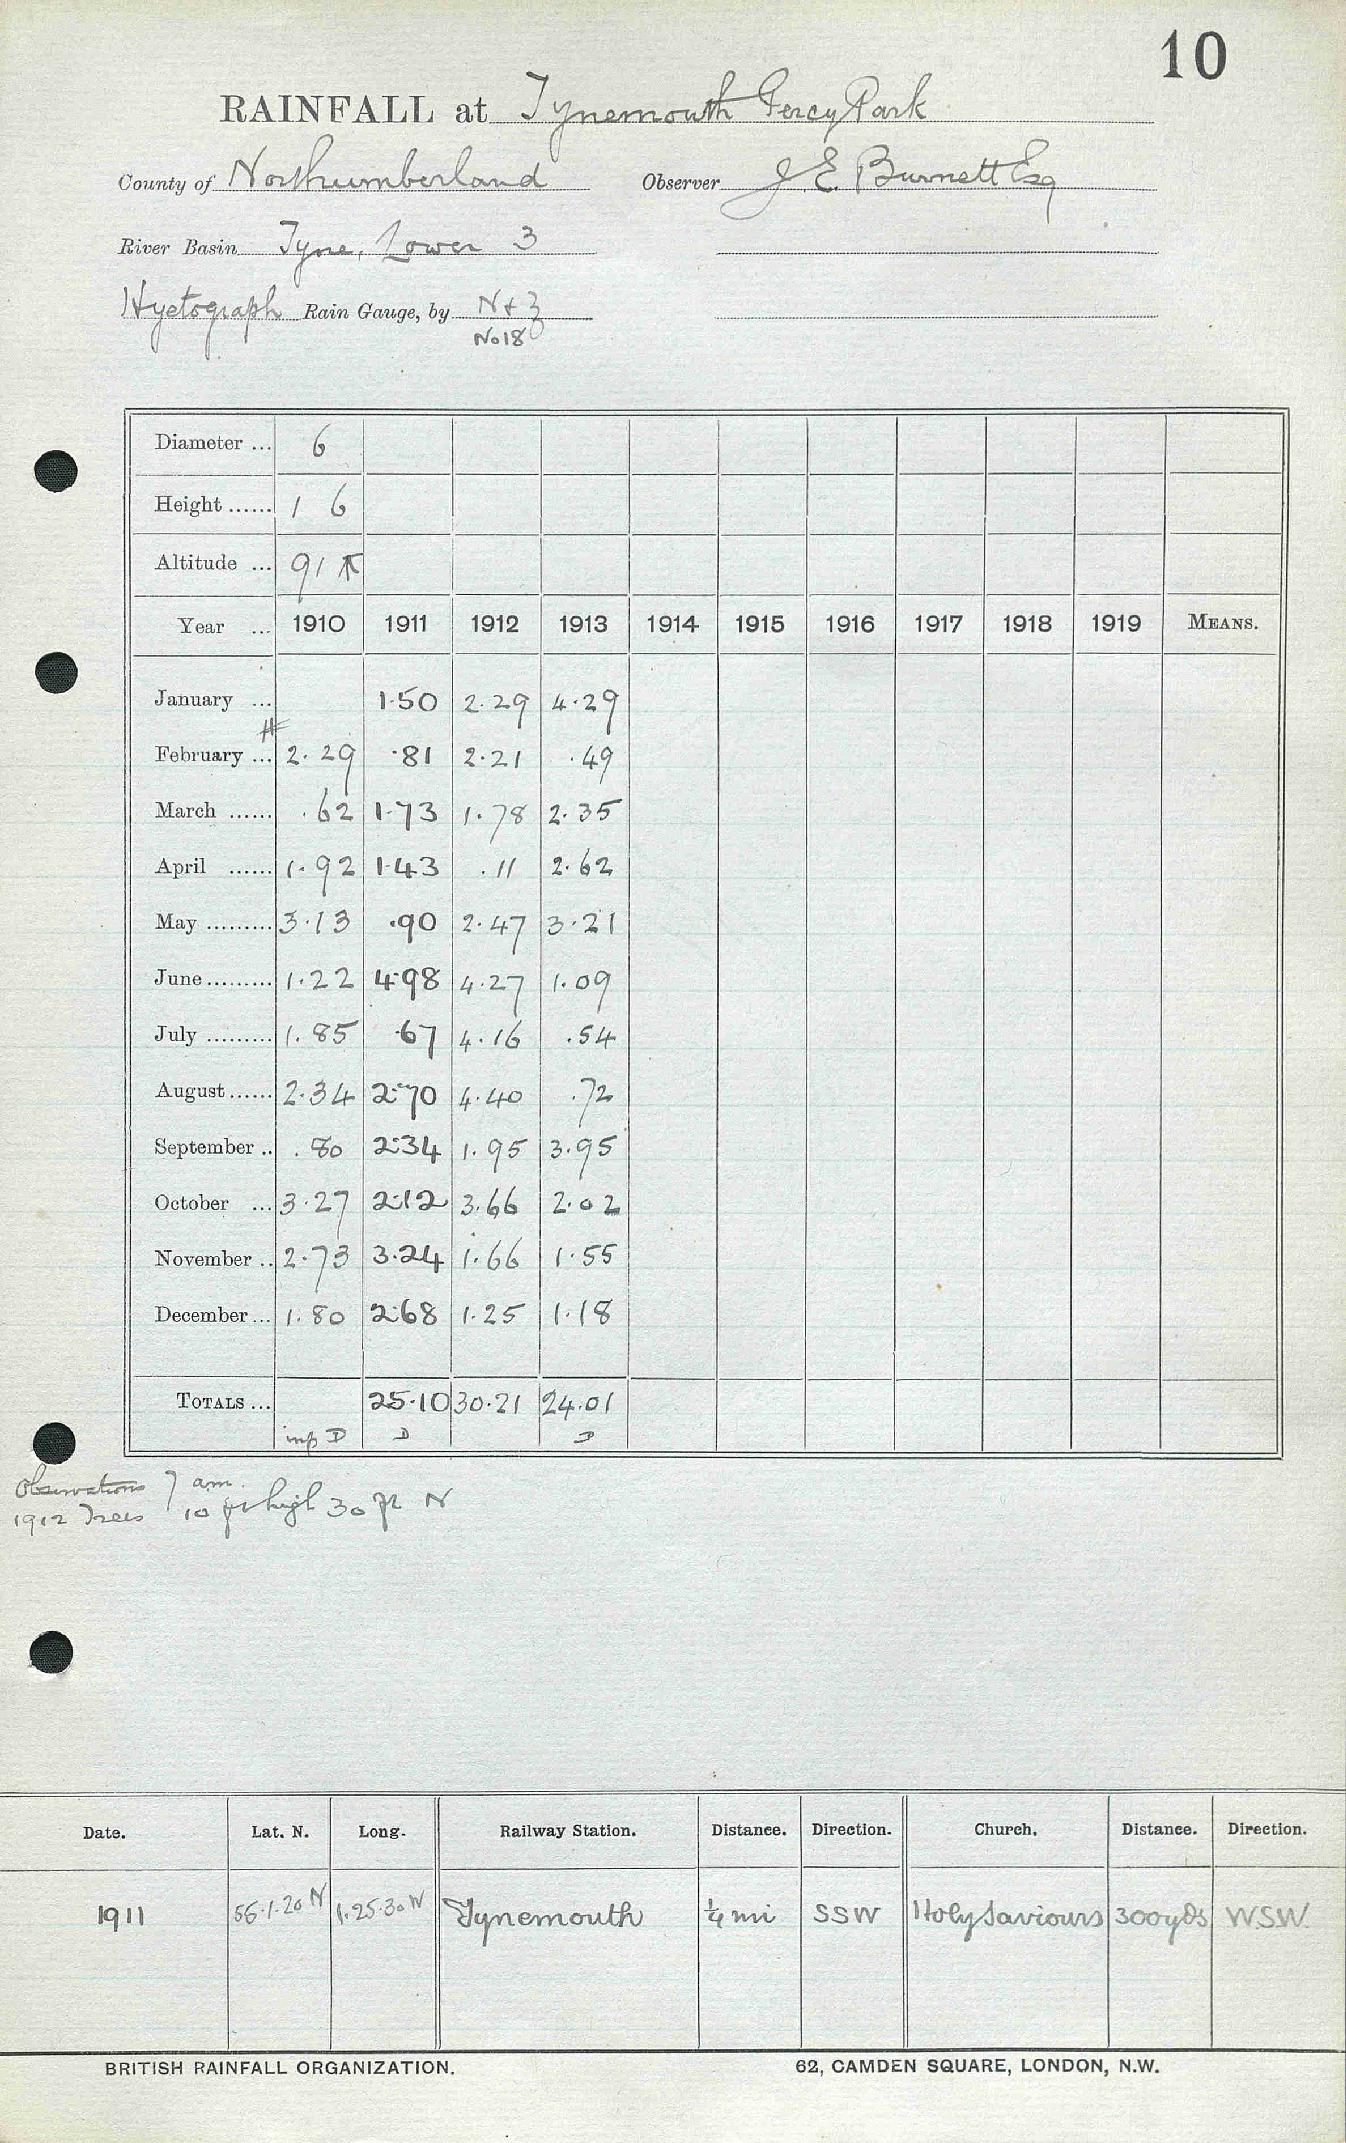 10
RAINFALL at Tynemouth Percy Park
County of Northumberland Observer J E Burnett Esq
River Basin Tyne, Lower 3
Hyetograph Rain Gauge, by N + Z
No 18
Diameter ... 6
Height ...... 1 6
Altitude ... 91
Year ... 1910 1911 1912 1913 1914 1915 1916 1917 1918 1919 MEANS.
January ... 1.50 2.29 4.29
February ... 2.29 .81 2.21 .49
March ...... .62 1.73 1.78 2.35
April ...... 1.92 1.43 .11 2.62
May ......... 3.13 .90 2.47 3.21
June ......... 1.22 4.98 4.27 1.09
July ......... 1.85 .67 4.16 .54
August ...... 2.34 2.70 4.40 .72
September .. .80 2.34 1.95 3.95
October ... 3.27 2.12 3.66 2.02
November .. 2.73 3.24 1.66 1.55
December ... 1.80 2.68 1.25 1.18
TOTALS ... 25.10 30.21 24.01
imp D D D
Observations 7 am.
1912 Trees 10 ft high 30 ft N
Date. Lat. N. Long. Railway Station. Distance. Direction. Church. Distance. Direction.
1911 55.1.20 N 1.25.30 W Tynemouth ¼ mi SSW Holy Saviours 300 yds W.S.W.
BRITISH RAINFALL ORGANIZATION. 62, CAMDEN SQUARE, LONDON, N.W.